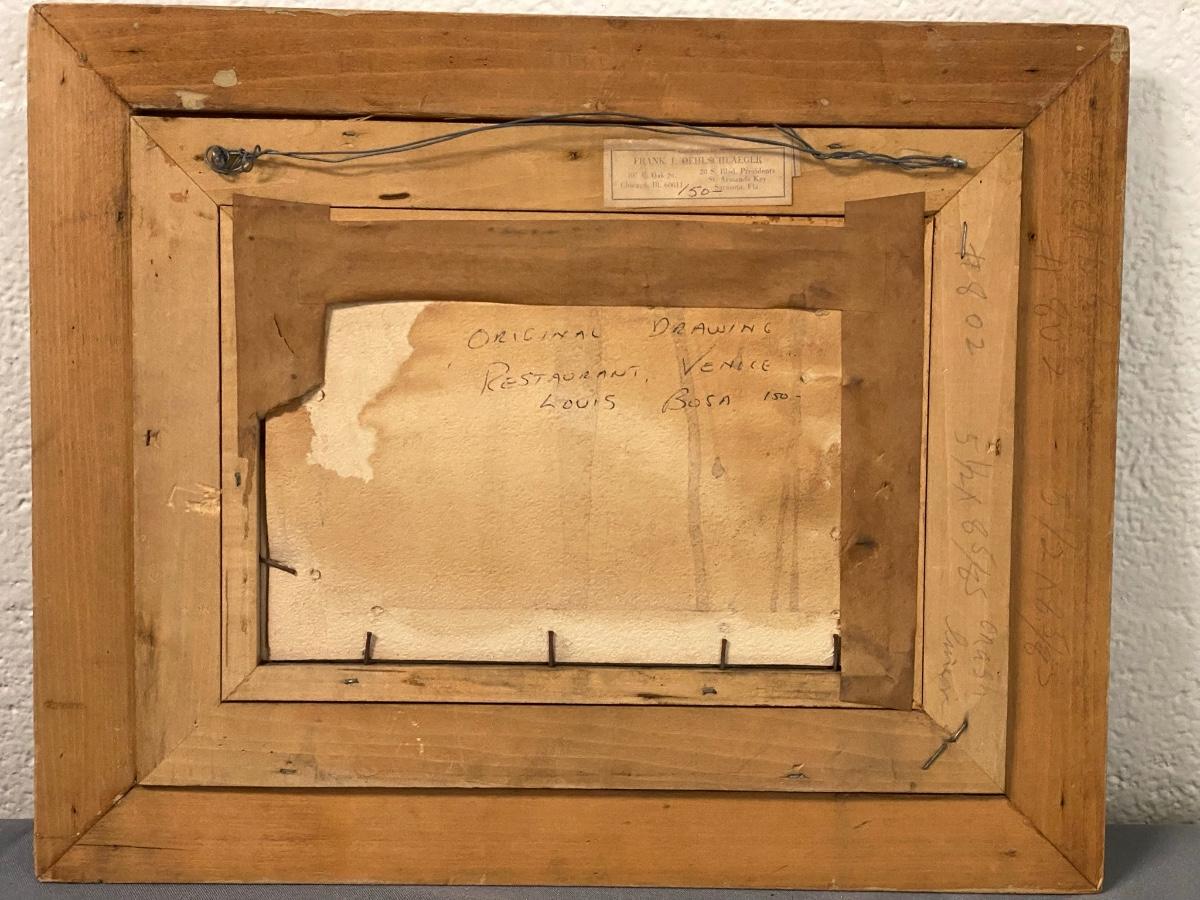 FRANK J. OEHLSCHLAEGER
107 E. Oak St. 28 S. Blvd. Presidents
St. Armands Key
Chicago, Ill. 60611 Sarasota, Fla.
150-
ORIGINAL DRAWING
"RESTAURANT, VENICE"
LOUIS BOSA 150-
#802 5 1/2 x 8 5/8
# 802 5 1/2 x 8 5/8